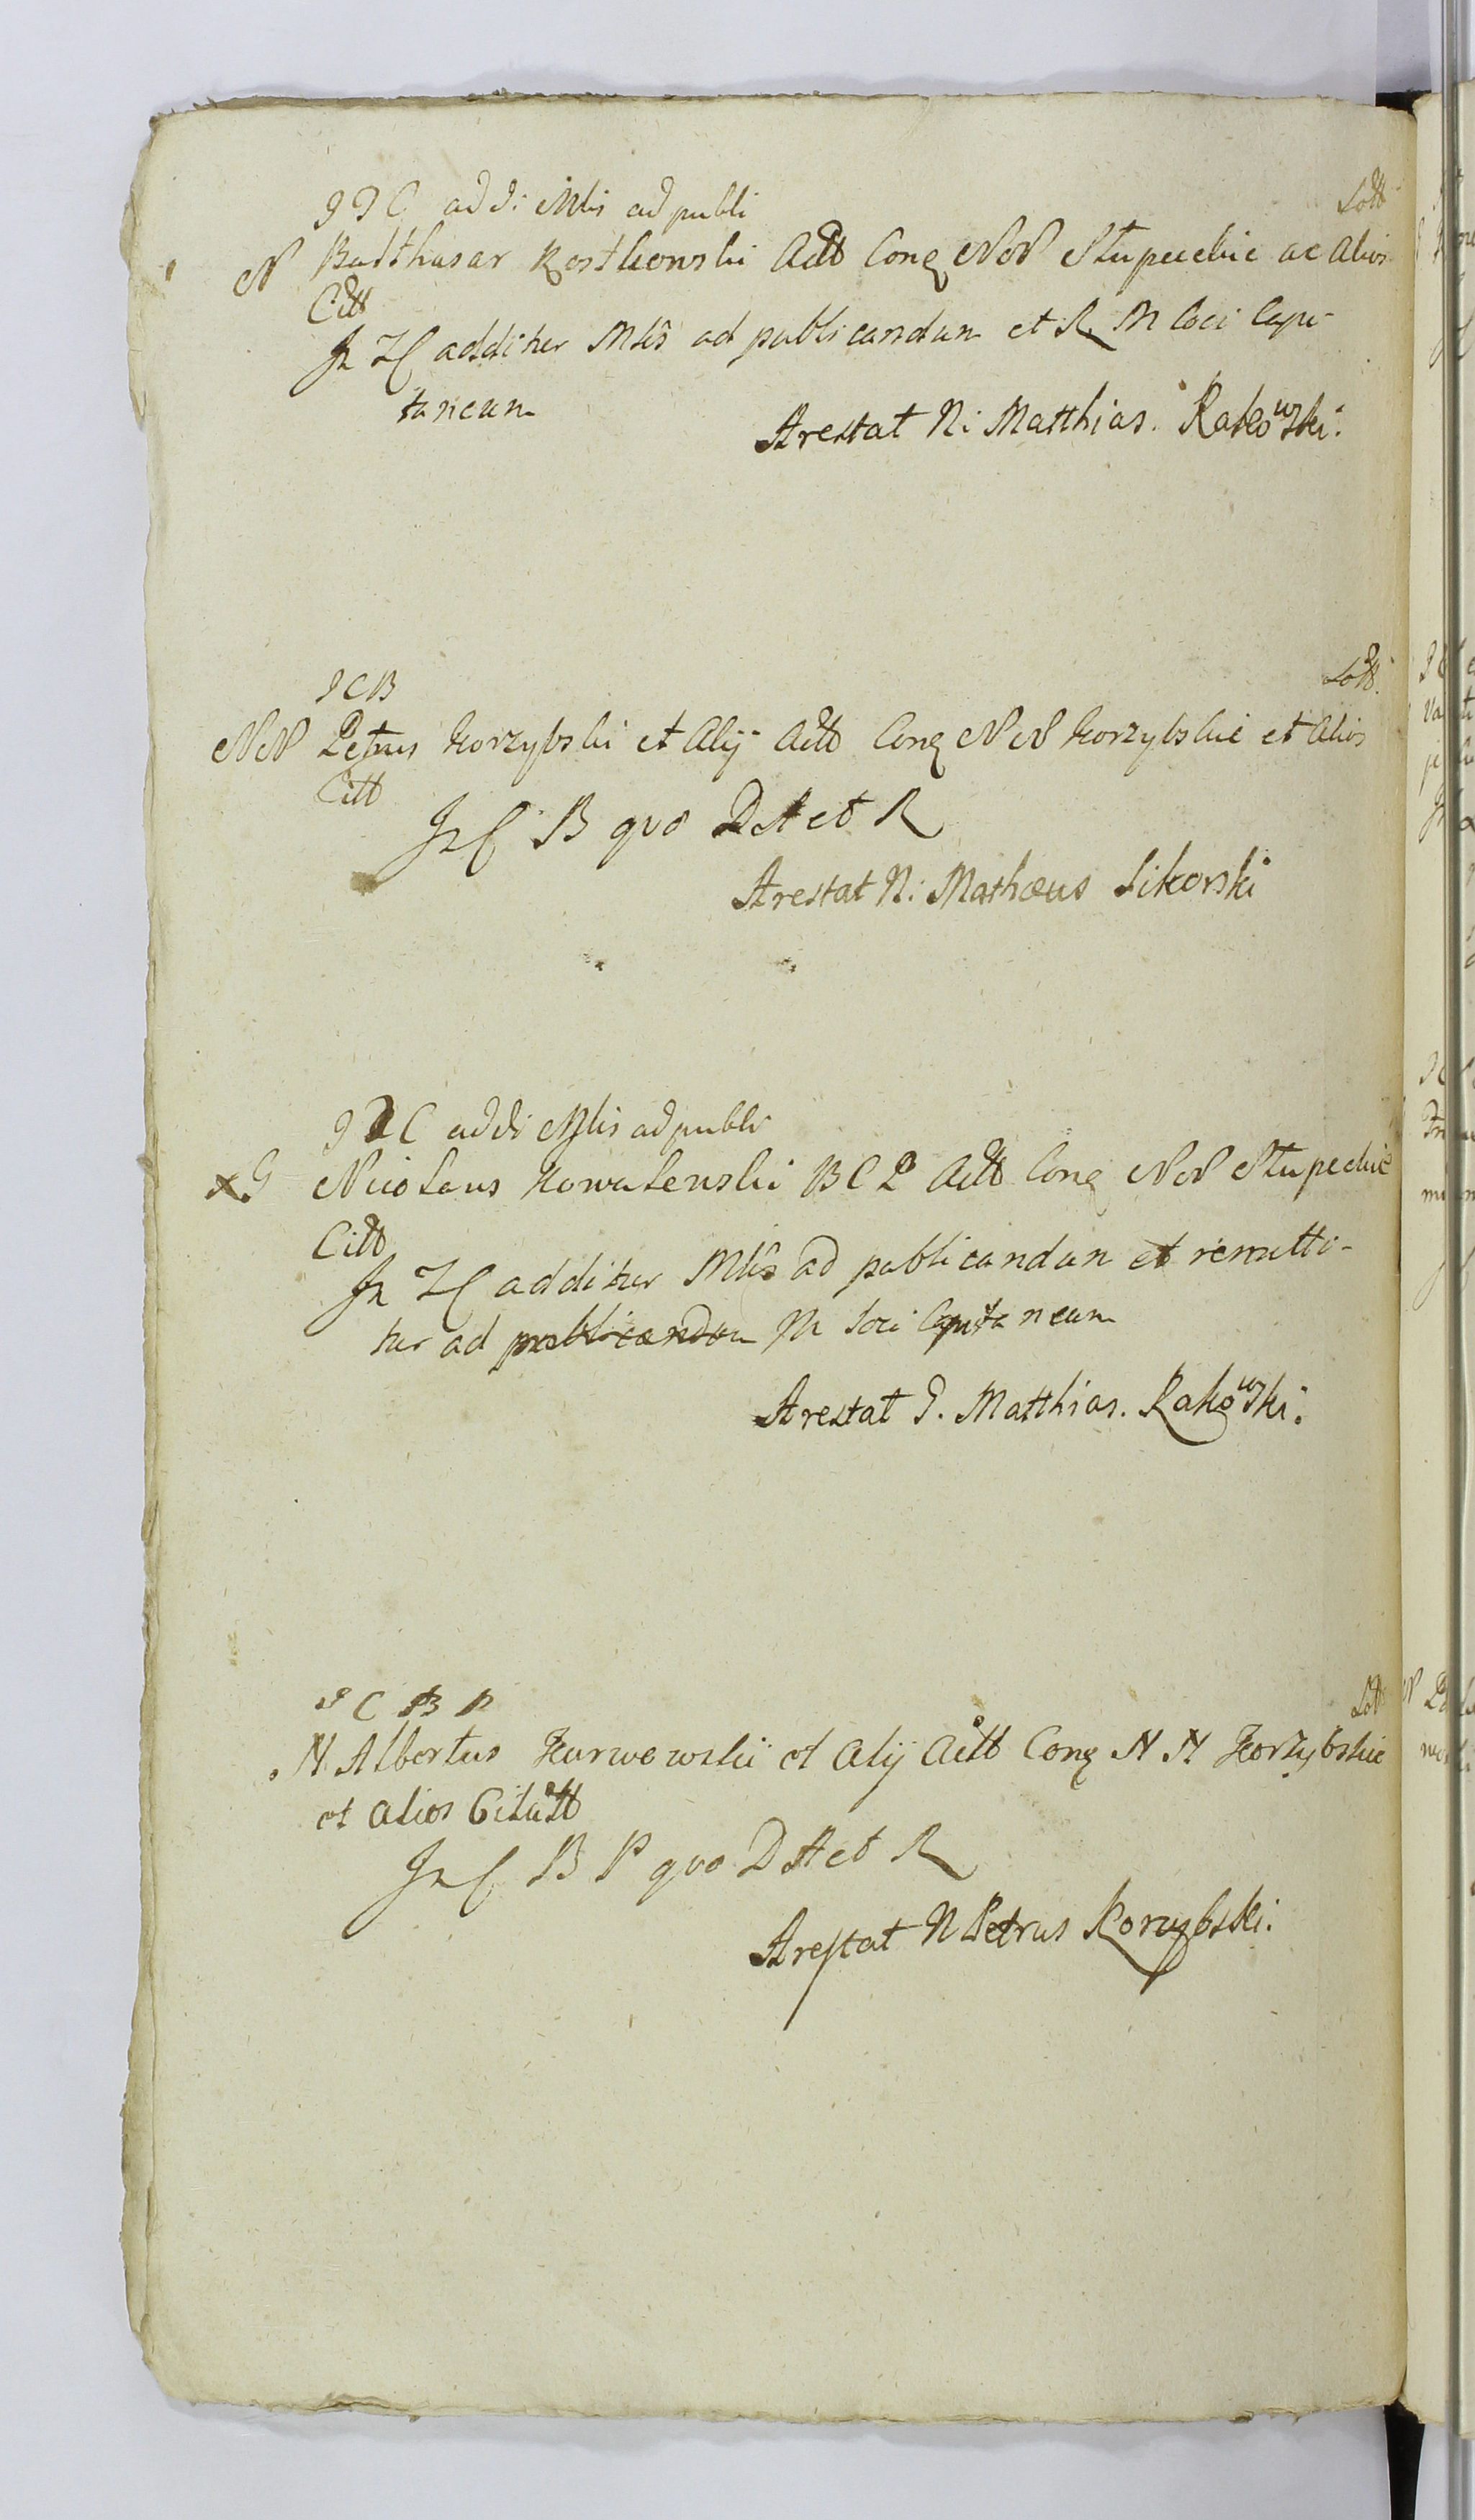 I I C addi Mlis ad publi
Lott
N Balthasar Rostkowski Actt Conq NN Stupeckie ac Alios
Citt
In IC additur Mlis ad publicandum et R M Loci Capi-
taneum
Arestat N: Matthias. Rakowski.
I C B
Lott
NN Petrus Korzybski et Alij Actt Conq NN Korzybskie et Alios
Citt
In C B quo D A et R
Arestat N: Mathæus Sikorski
I I C addi Mlis ad publi
x G Nicolaus Kowalewski B C P Actt Conq NN Stupeckie
Citt
In IC additur Mlis ad publicandum et remitti-
tur ad publicandum M Loci Capitaneum
Arestat G. Matthias. Rakowski.
I C B P
Lott
N Albertus Kurwowski et Alij Actt Conq N N Korzybskie
et Alios Citatt
In C B P quo D A et R
Arestat N Petrus Korzybski.